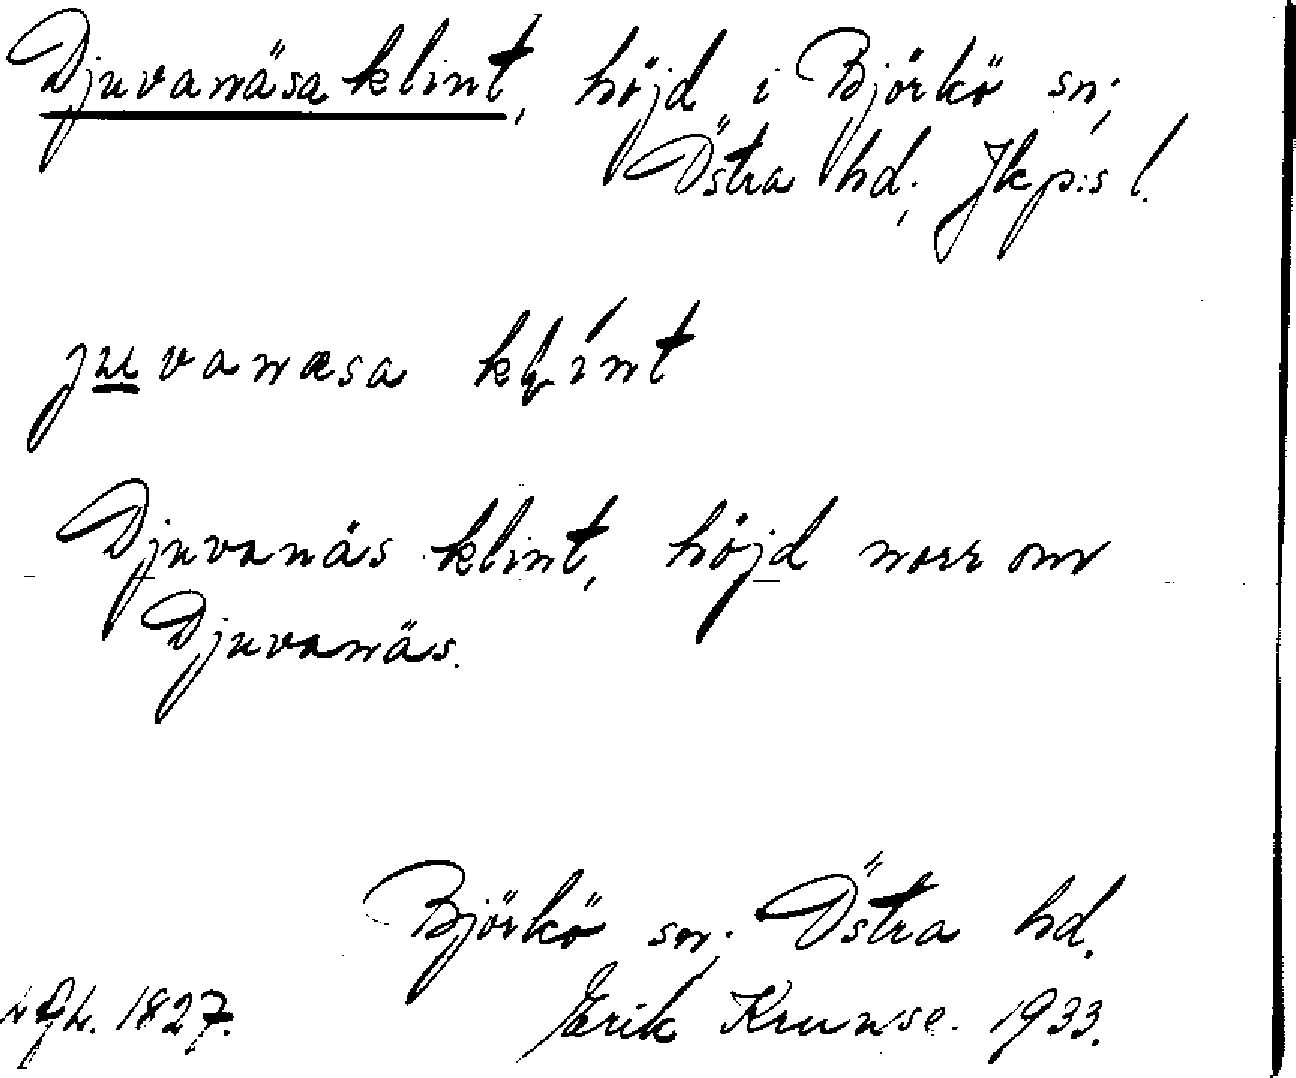 Djuvanäsa klint, höjd i Björkö sn;
Östra hd; Jkp:s l.
juvanæsa klint
Djuvanäs klint, höjd norr om
Djuvanäs.
Björkö sn; Östra hd.
1827. Erik Krunse. 1933.